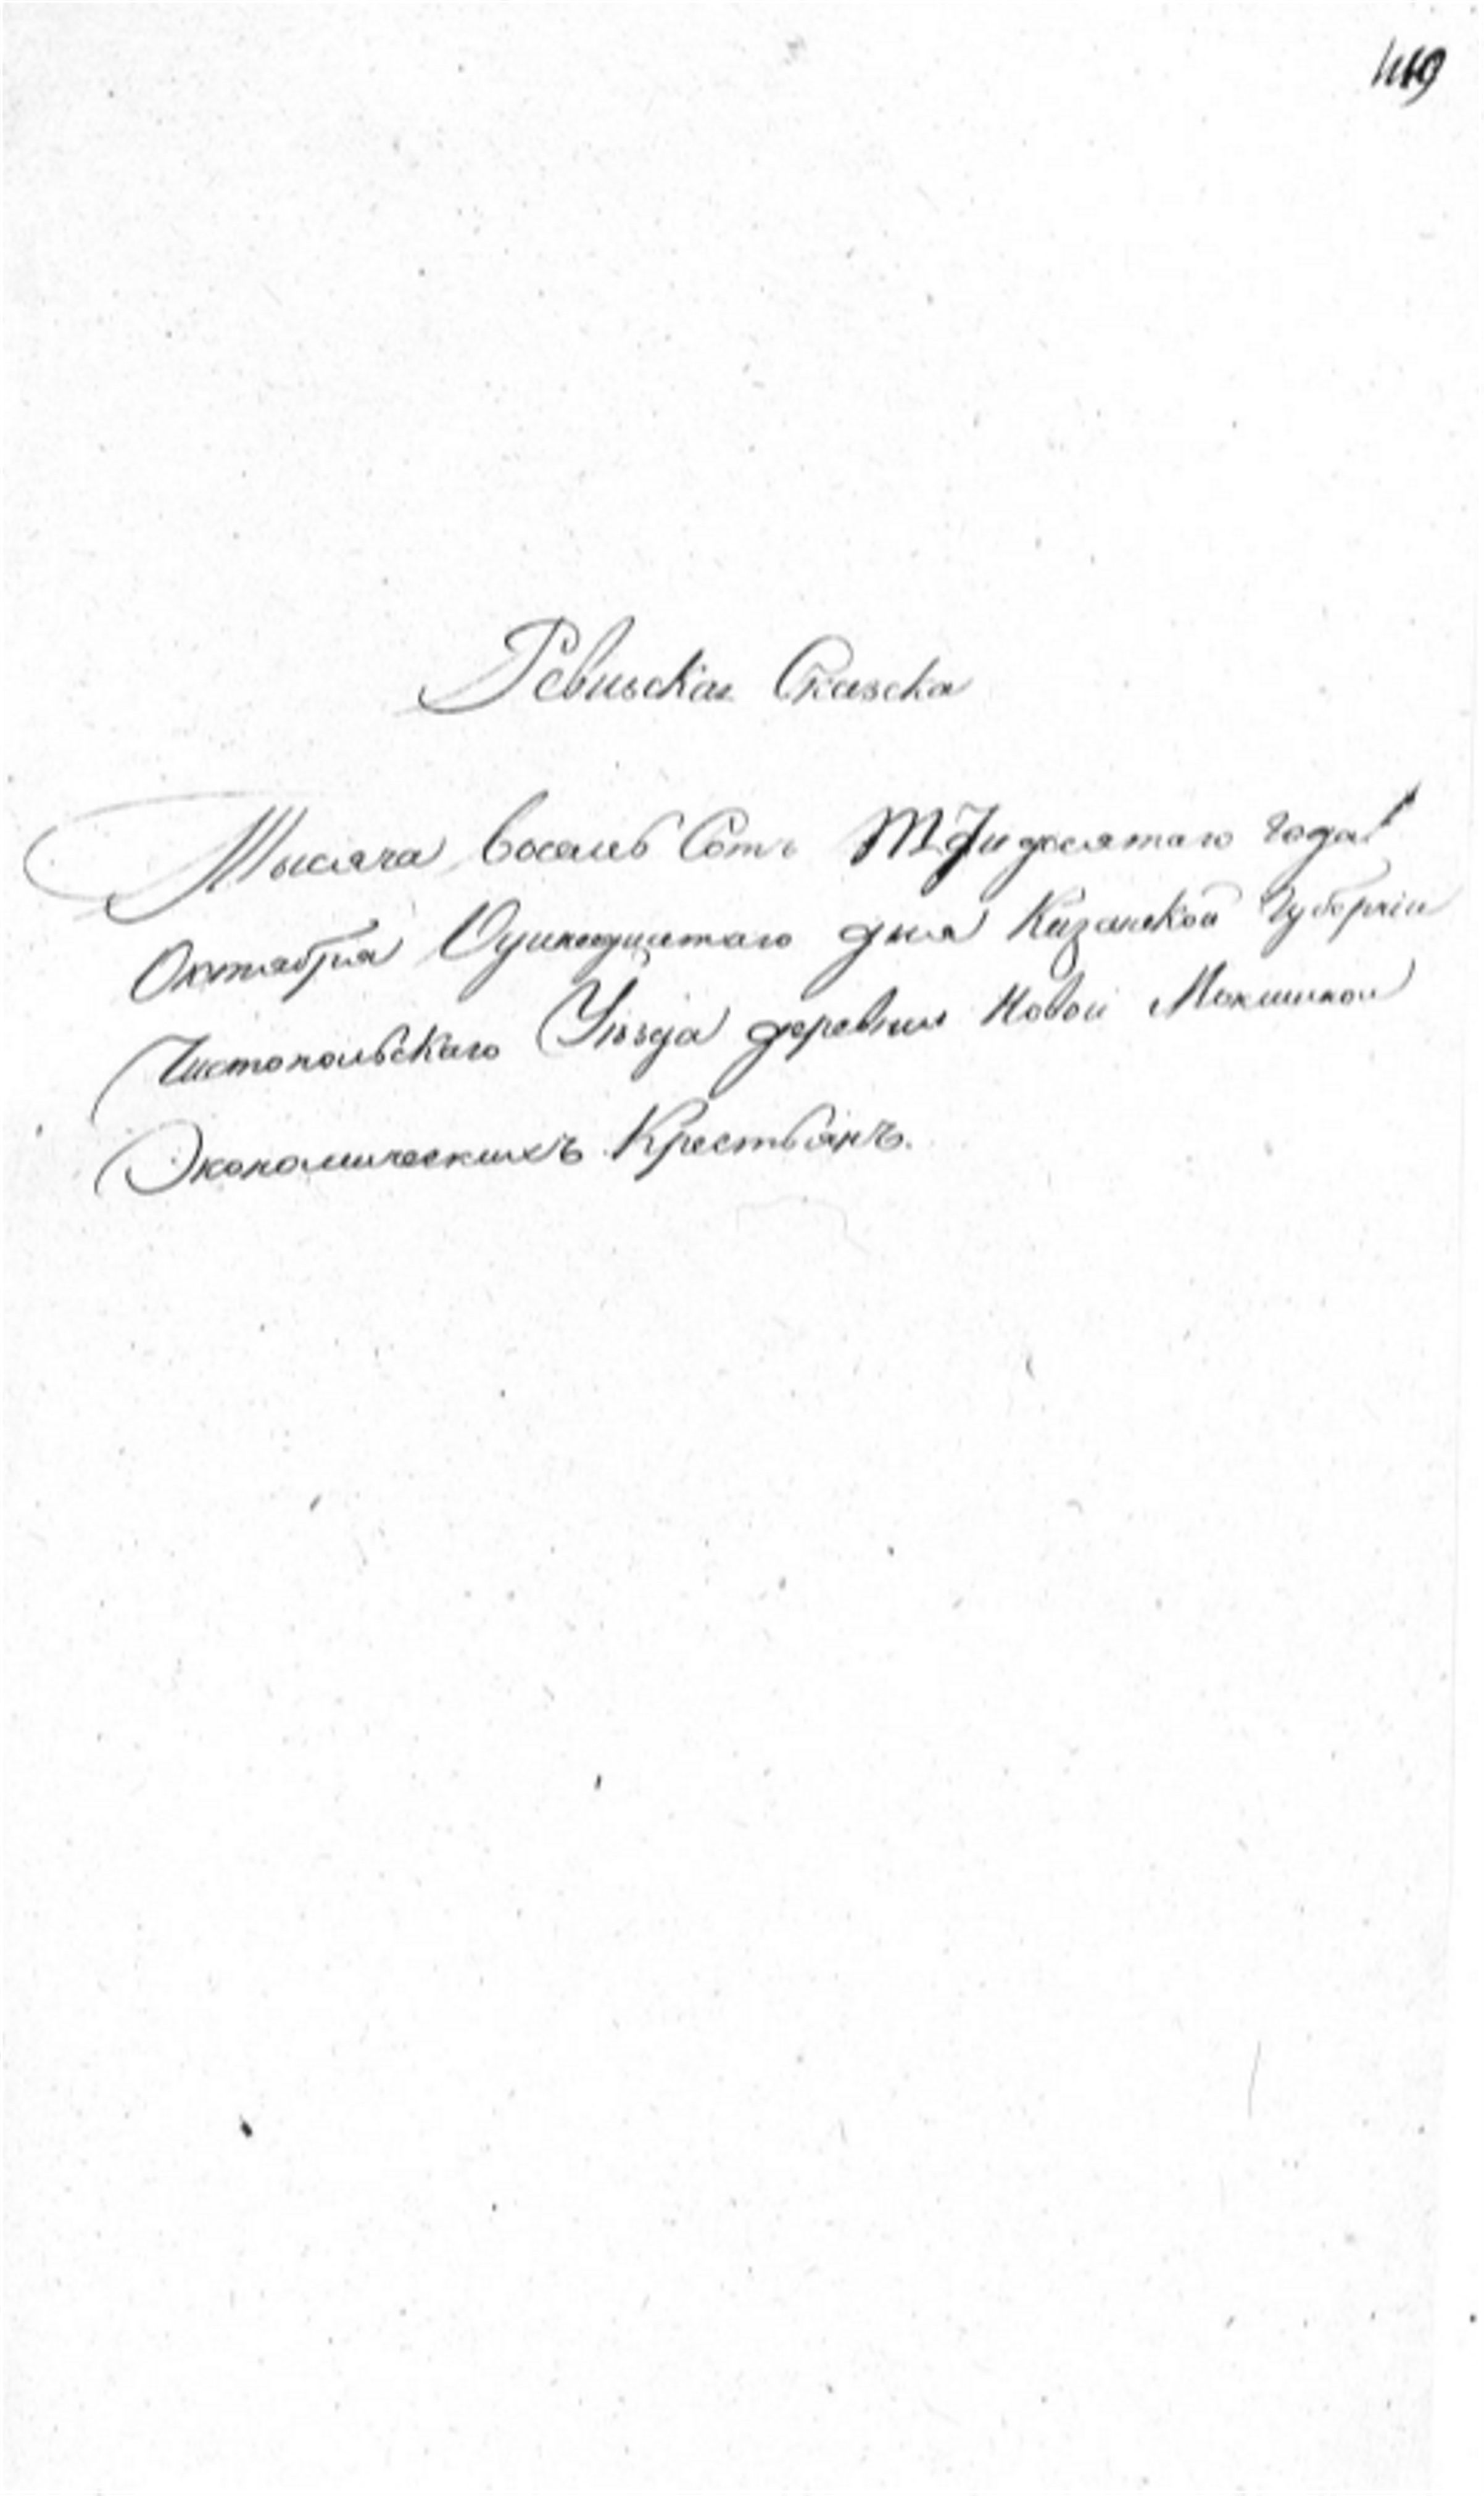 Ревиская Сказска
Тысяча восемь Сотъ Тридесятаго года
Октября Одинадцатаго дня Казанской Губерніи
Чистопольскаго Уѣзда деревни Новой Мокшиной
Экономическихъ Крестьянъ.